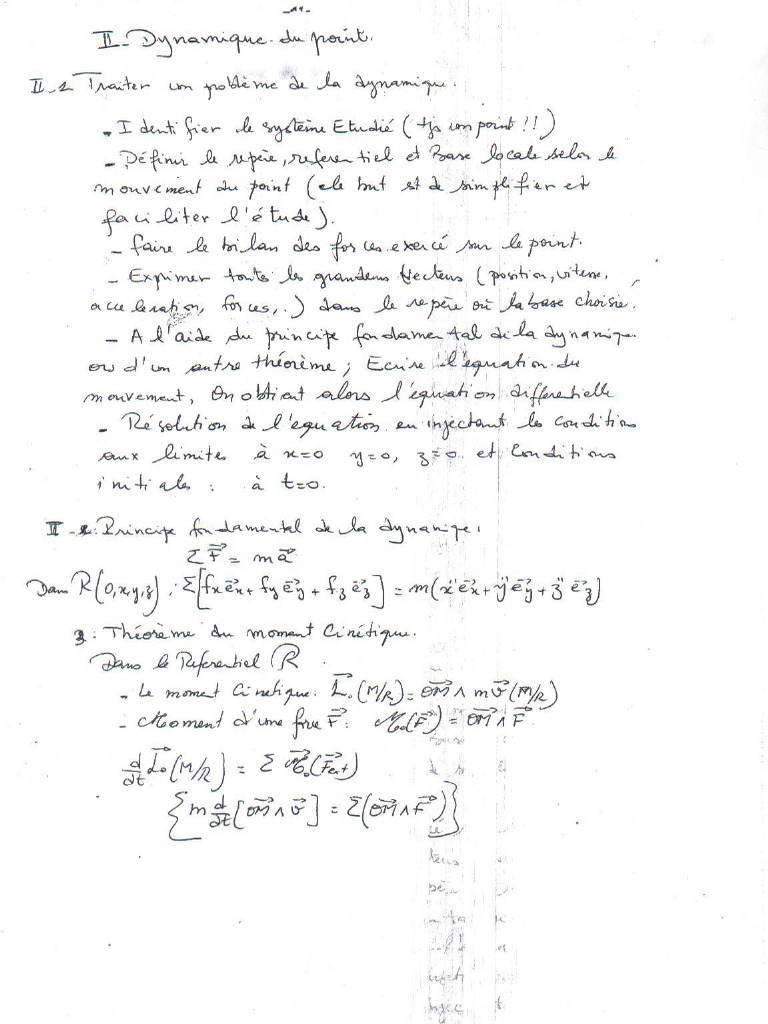 II_ Dynamique du point.
II_1 Traiter un problème de la dynamique.
- Identifier le système Etudié (tjs un point !!)
- Définir le repère, referentiel et Base locale selon le
mouvement du point (le but est de simplifier et
faciliter l'étude).
- faire le bilan des forces exercé sur le point.
- Exprimer toutes les grandeurs Vecteurs (position, vitesse,
acceleration, forces,..) dans le repère où la base choisie.
- A l'aide du principe fondamental de la dynamique
ou d'un autre théorème ; Ecrire l'équation du
mouvement, On obtient alors l'équation differentielle
- Résolution de l'équation en injectant les conditions
aux limites à x=0 y=0, z=0 et Conditions
initiales : à t=0.
II_2: Principe fondamental de la dynamique:
Σ F⃗ = m a⃗
Dans R(0,x,y,z) : Σ[fx e⃗x + fy e⃗y + fz e⃗z] = m(ẍ e⃗x + ÿ e⃗y + z̈ e⃗z)
3: Théorème du moment Cinétique.
Dans le Referentiel R
- Le moment Cinetique: L⃗o (M/R) = OM⃗ ∧ m v⃗ (M/R)
- Moment d'une force F⃗: M⃗o(F⃗) = OM⃗ ∧ F⃗
d/dt L⃗o (M/R) = Σ M⃗o (F⃗ext)
{ m d/dt [OM⃗ ∧ v⃗] = Σ(OM⃗ ∧ F⃗) }